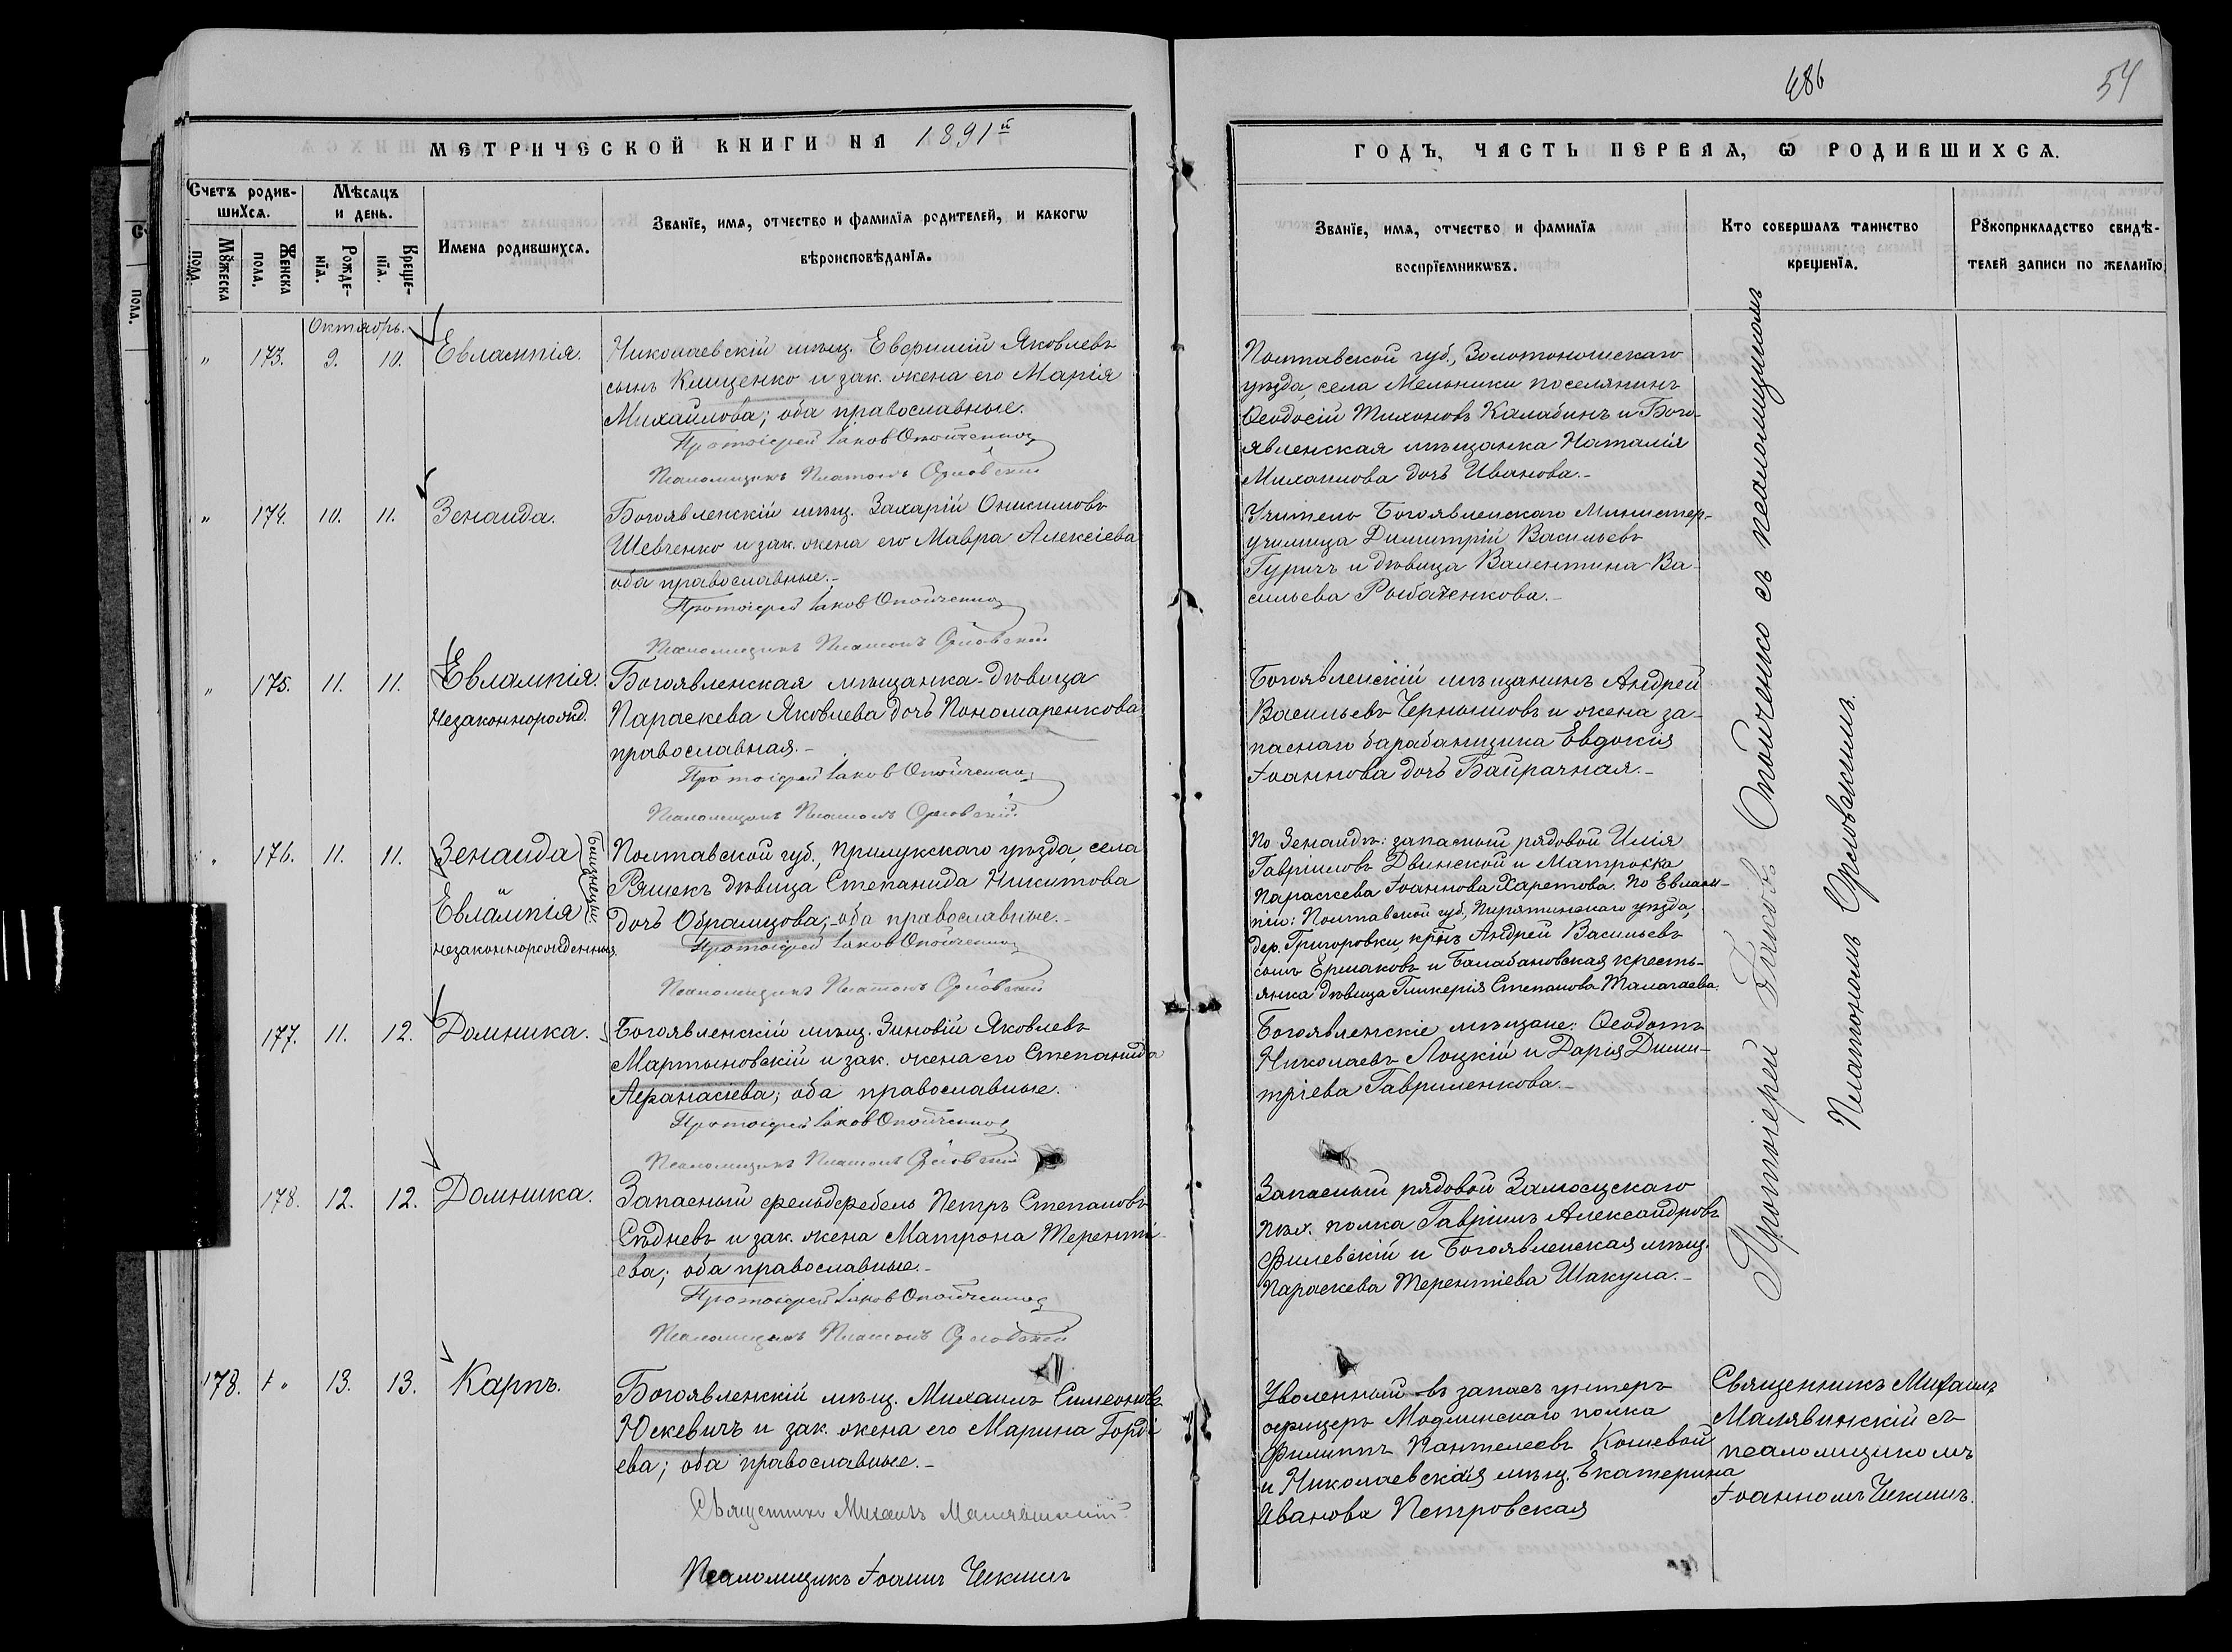 486
54
МЕТРИЧЕСКОЙ КНИГИ НА 1891й
ГОДЪ, ЧАСТЬ ПЕРВАЯ, Ѡ РОДИВШИХСѦ.
Счетъ родив-
шихсѧ.
Мѣсѧцъ
и день.
Мꙋжеска
пола.
Женска
пола.
Рожде-
нїѧ.
Креще-
нїѧ.
Имена родившихсѧ.
Званїе, имѧ, отчество и фамилїѧ родителей, и какогѡ
вѣроисповѣданїѧ.
Званїе, имѧ, отчество и фамилїѧ
воспрїемникѡвъ.
Кто совершалъ таинство
крещенїѧ.
Рꙋкоприкладство свидѣ-
телей записи по желанїю
Октябрь.
" 173. 9. 10. Евлампія.
Николаевскій мѣщ. Евфимій Яковлевъ
сынъ Клищенко и зак. жена его Марія
Михайлова; оба православные.
Протоіерей Іаковъ Опойченко
Псаломщикъ Платонъ Орловскій
Полтавской губ., Золотоношскаго
уѣзда, села Мельники поселянинъ
Ѳеодосій Тихоновъ Калабинъ и Бого-
явленская мѣщанка Наталія
Михаилова дочь Иванова.-
" 174. 10. 11. Зенаида.
Богоявленскій мѣщ. Захарій Онисимовъ
Шевченко и зак. жена его Мавра Алексіева
оба православные.-
Протоіерей Іаковъ Опойченко
Псаломщикъ Платонъ Орловскій
Учитель Богоявленскаго Министер.
училища Димитрій Васильевъ
Гуричъ и дѣвица Валентина Ва-
сильева Рыбаченкова.-
" 175. 11. 11. Евлампія.
Незаконнорожд.
Богоявленская мѣщанка-дѣвица
Параскева Яковлева дочь Пономаренкова
православная.-
Протоіерей Іаковъ Опойченко
Псаломщикъ Платонъ Орловскій
Богоявленскій мѣщанинъ Андрей
Васильевъ Чернышовъ и жена за-
паснаго барабанщика Евдокія
Іоаннова дочь Байрачная.-
" 176. 11. 11. Зенаида
и
Евлампія
близнецы
незаконнорожденныя.
Полтавской губ., Прилукскаго уѣзда, села
Ряшекъ дѣвица Степанида Никитова
дочь Обрамцова;-оба православные.-
Протоіерей Іаковъ Опойченко
Псаломщикъ Платонъ Орловскій
По Зенаидѣ: запасный рядовой Илія
Гавріиловъ Двинской и Матроска
Параскева Іоаннова Харетова. По Евлам-
піи: Полтавской губ., Пирятинскаго уѣзда,
дер. Григоровки, крнъ Андрей Васильевъ
сынъ Ермаковъ и Балабановская кресть-
янка дѣвица Гликерія Степанова Малагаева.
177. 11. 12. Домника.
Богоявленскій мѣщ. Зиновій Яковлевъ
Мартыновскій и зак. жена его Степанида
Афанасіева; оба православные.
Протоіерей Іаковъ Опойченко
Псаломщикъ Платонъ Орловскій
Богоявленскіе мѣщане: Ѳеодотъ
Николаевъ Лоцкій и Дарія Дими-
тріева Гавриленкова.-
178. 12. 12. Домника.
Запасный фельдфебель Петръ Степановъ
Сѣдневъ и зак. жена Матрона Теренті-
ева; оба православные.-
Протоіерей Іаковъ Опойченко
Псаломщикъ Платонъ Орловскій
Запасный рядовой Замосцскаго
пѣх. полка Гавріилъ Александровъ
Филевскій и Богоявленская мѣщ.
Параскева Терентіева Шакула.-
Протоіерей Іаковъ Опойченко съ псаломщикомъ
Платономъ Орловскимъ.
178. " 13. 13. Карпъ.
Богоявленскій мѣщ. Михаилъ Симеоновъ
Юскевичъ и зак. жена его Марина Горді
ева; оба православные.-
Священникъ Михаилъ Малявинскій
Псаломщикъ Іоаннъ Чекминъ
Уволенный въ запасъ унтеръ
офицеръ Модлинскаго полка
Филиппъ Пантелеевъ Кошевой
и Николаевская мѣщ. Екатерина
Иванова Петровская
Священникъ Михаилъ
Малявинскій съ
псаломщикомъ
Іоанномъ Чекминъ.